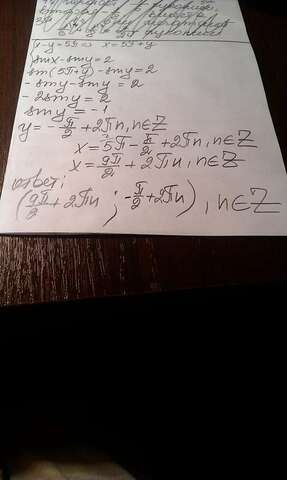 x-y=5π ⇒ x=5π+y
sinx-siny=2
sin(5π+y)-siny=2
-siny-siny=2
-2siny=2
siny=-1
y=-π/2+2πn, n∈Z
x=5π-π/2+2πn, n∈Z
x=9π/2+2πn, n∈Z
ответ:
(9π/2+2πn; -π/2+2πn), n∈Z